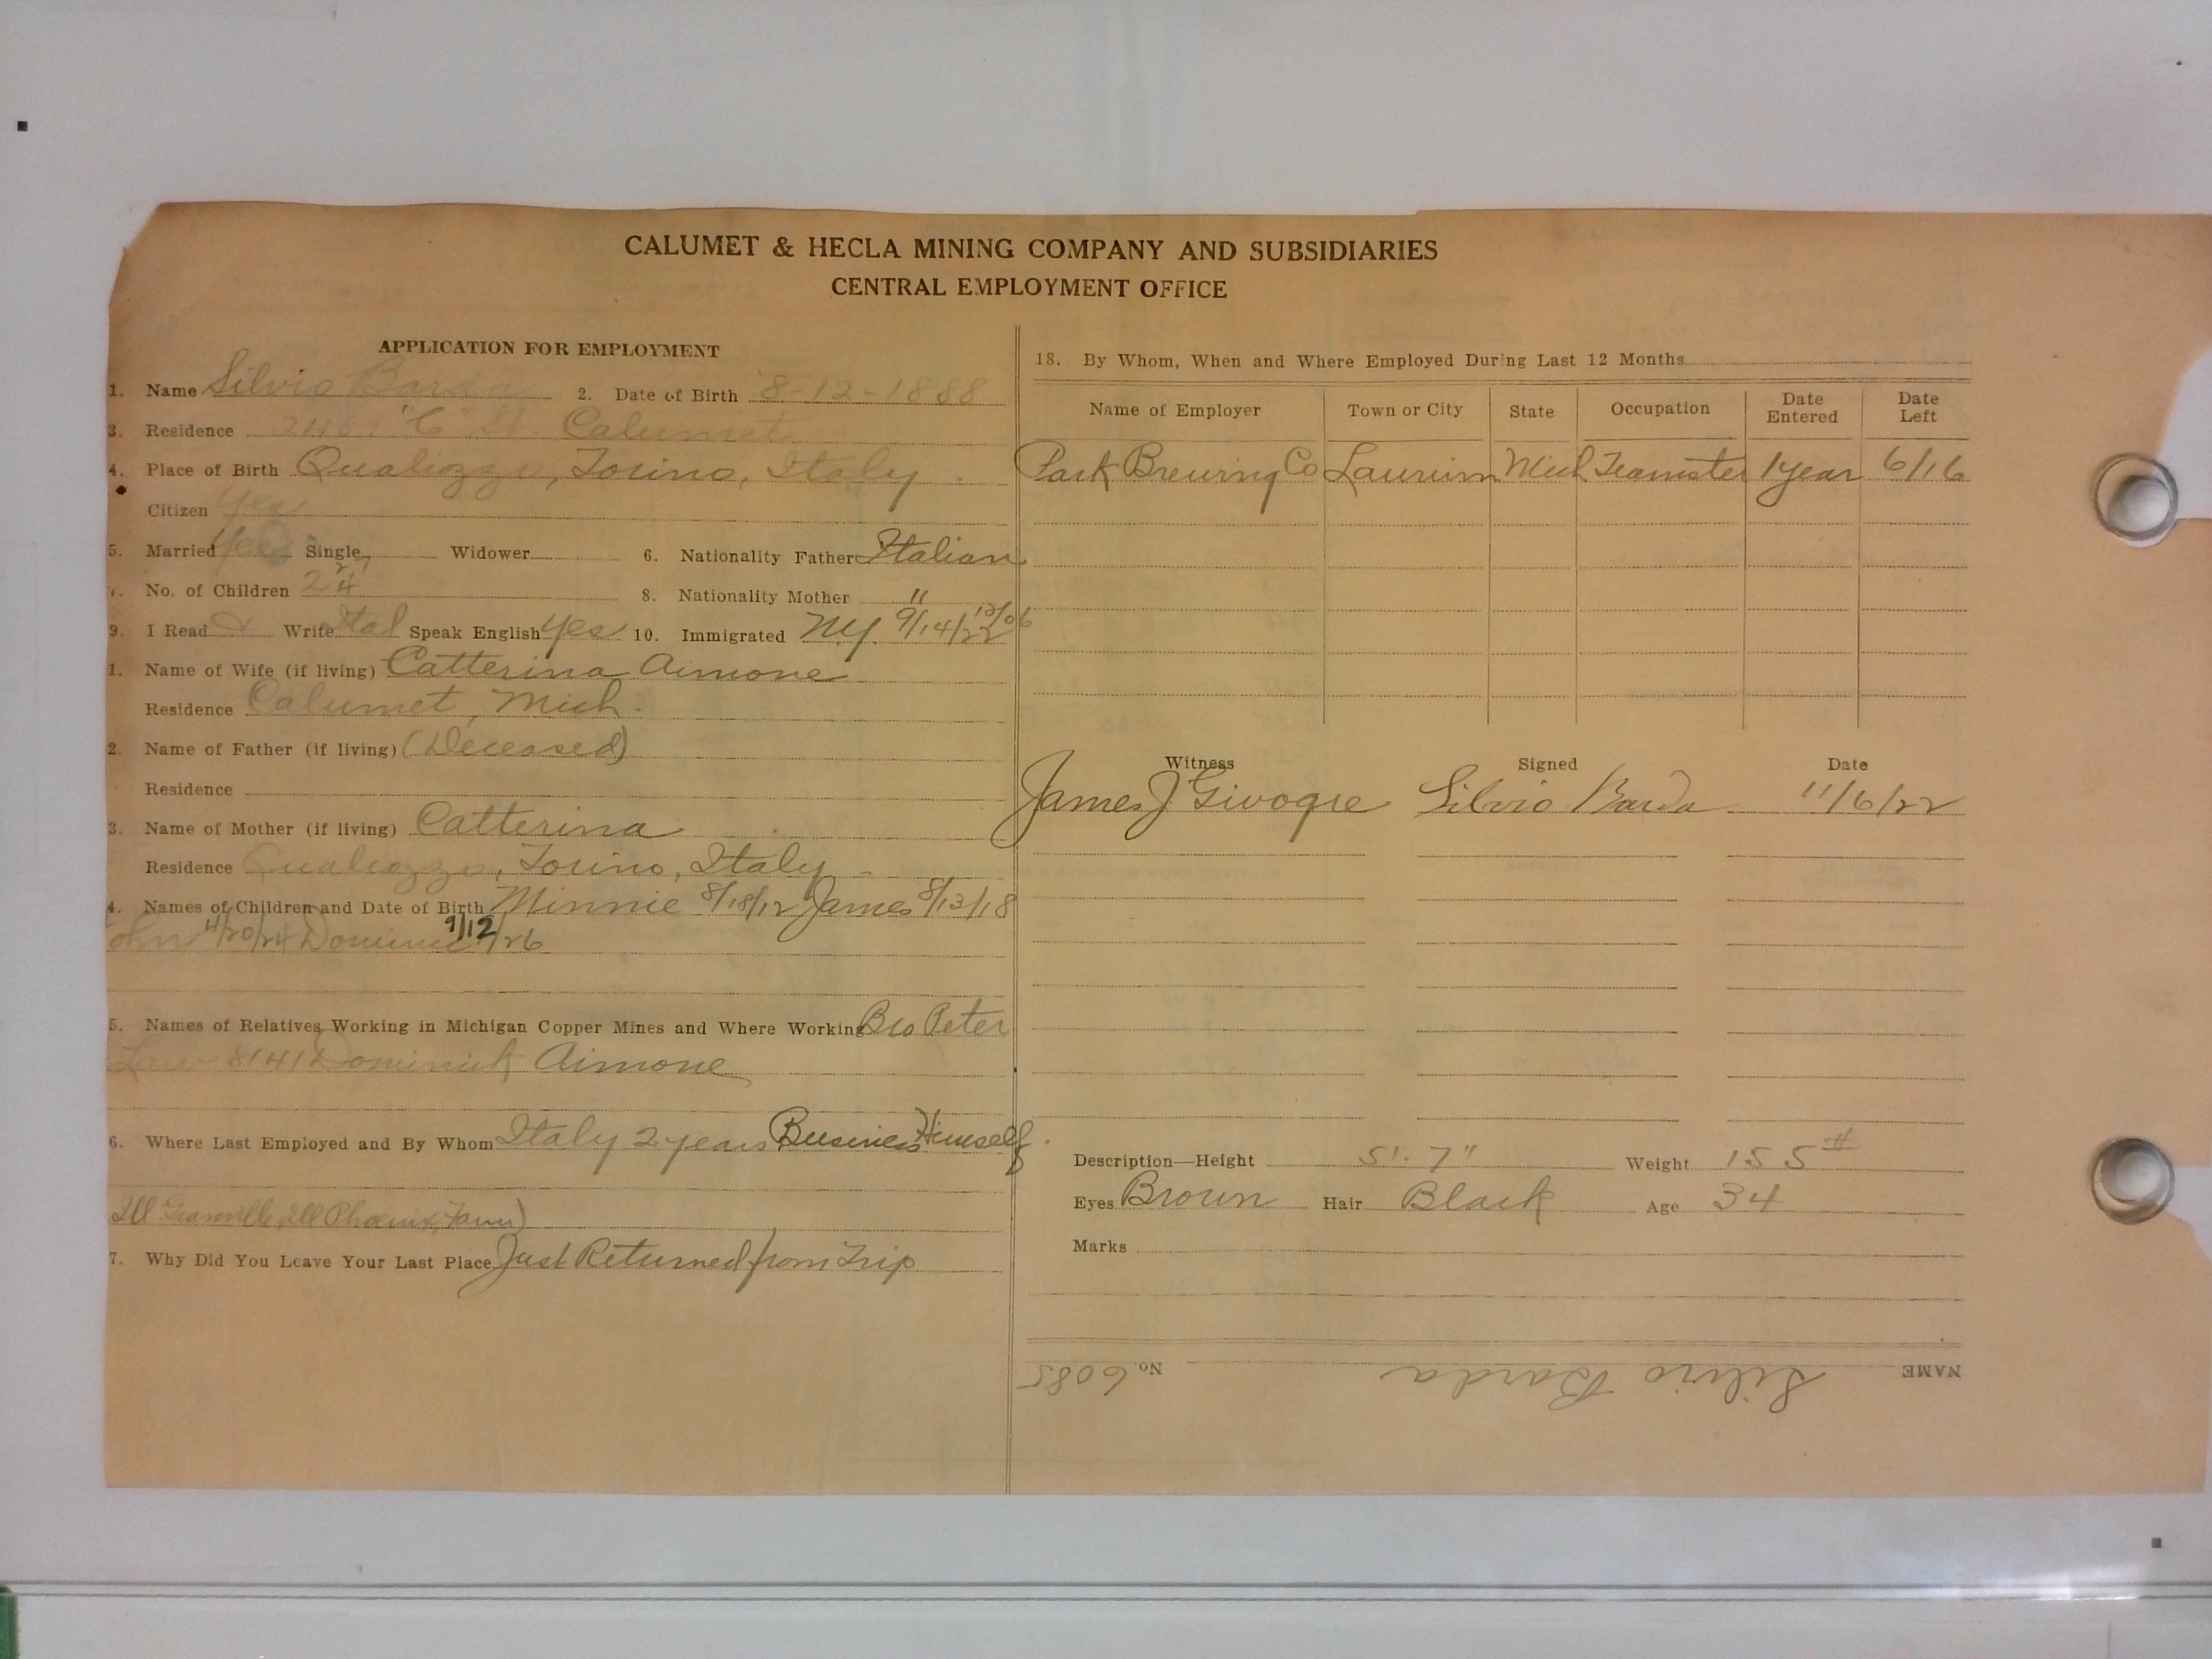 CALUMET & HECLA MINING COMPANY AND SUBSIDIARIES
CENTRAL EMPLOYMENT OFFICE
APPLICATION FOR EMPLOYMENT
1. Name Silvio Barda 2. Date of Birth 8-12-1888
3. Residence "C" St. Calumet
4. Place of Birth Qualiozzo, Torino, Italy
Citizen Yes
5. Married Yes Single Widower 6. Nationality Father Italian
7. No. of Children 2 4 8. Nationality Mother "
9. I Read & Write Ital Speak English Yes 10. Immigrated NY. 9/14/22
1. Name of Wife (if living) Catterina Aimone
Residence Calumet, Mich.
2. Name of Father (if living) (Deceased)
Residence
3. Name of Mother (if living) Catterina
Residence Qualiozzo, Torino, Italy
4. Names of Children and Date of Birth Minnie 8/18/12 James 8/13/18
John 4/20/24 Dominic 9/12/26
5. Names of Relatives Working in Michigan Copper Mines and Where Working Bro Peter
Law 8141 Dominick Aimone
6. Where Last Employed and By Whom Italy 2 years Business Himself
Ill Granville, Ill Phoenix,
7. Why Did You Leave Your Last Place Just Returned from Trip
18. By Whom, When and Where Employed During Last 12 Months
Name of Employer Town or City State Occupation Date Entered Date Left
Park Brewing Co Laurium Mich Teamster 1 year 6/16
Witness Signed Date
James J Silvio Barda 11/6/22
Description—Height 5'. 7" Weight 155 #
Eyes Brown Hair Black Age 34
Marks
NAME Silvio Barda No. 6085